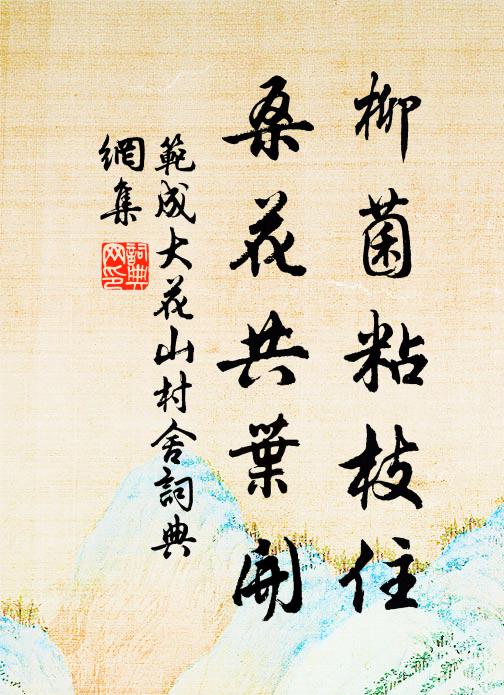 柳菌粘枝住
桑花共葉開
範成大花山村舍詞典
網集
詞典
网印